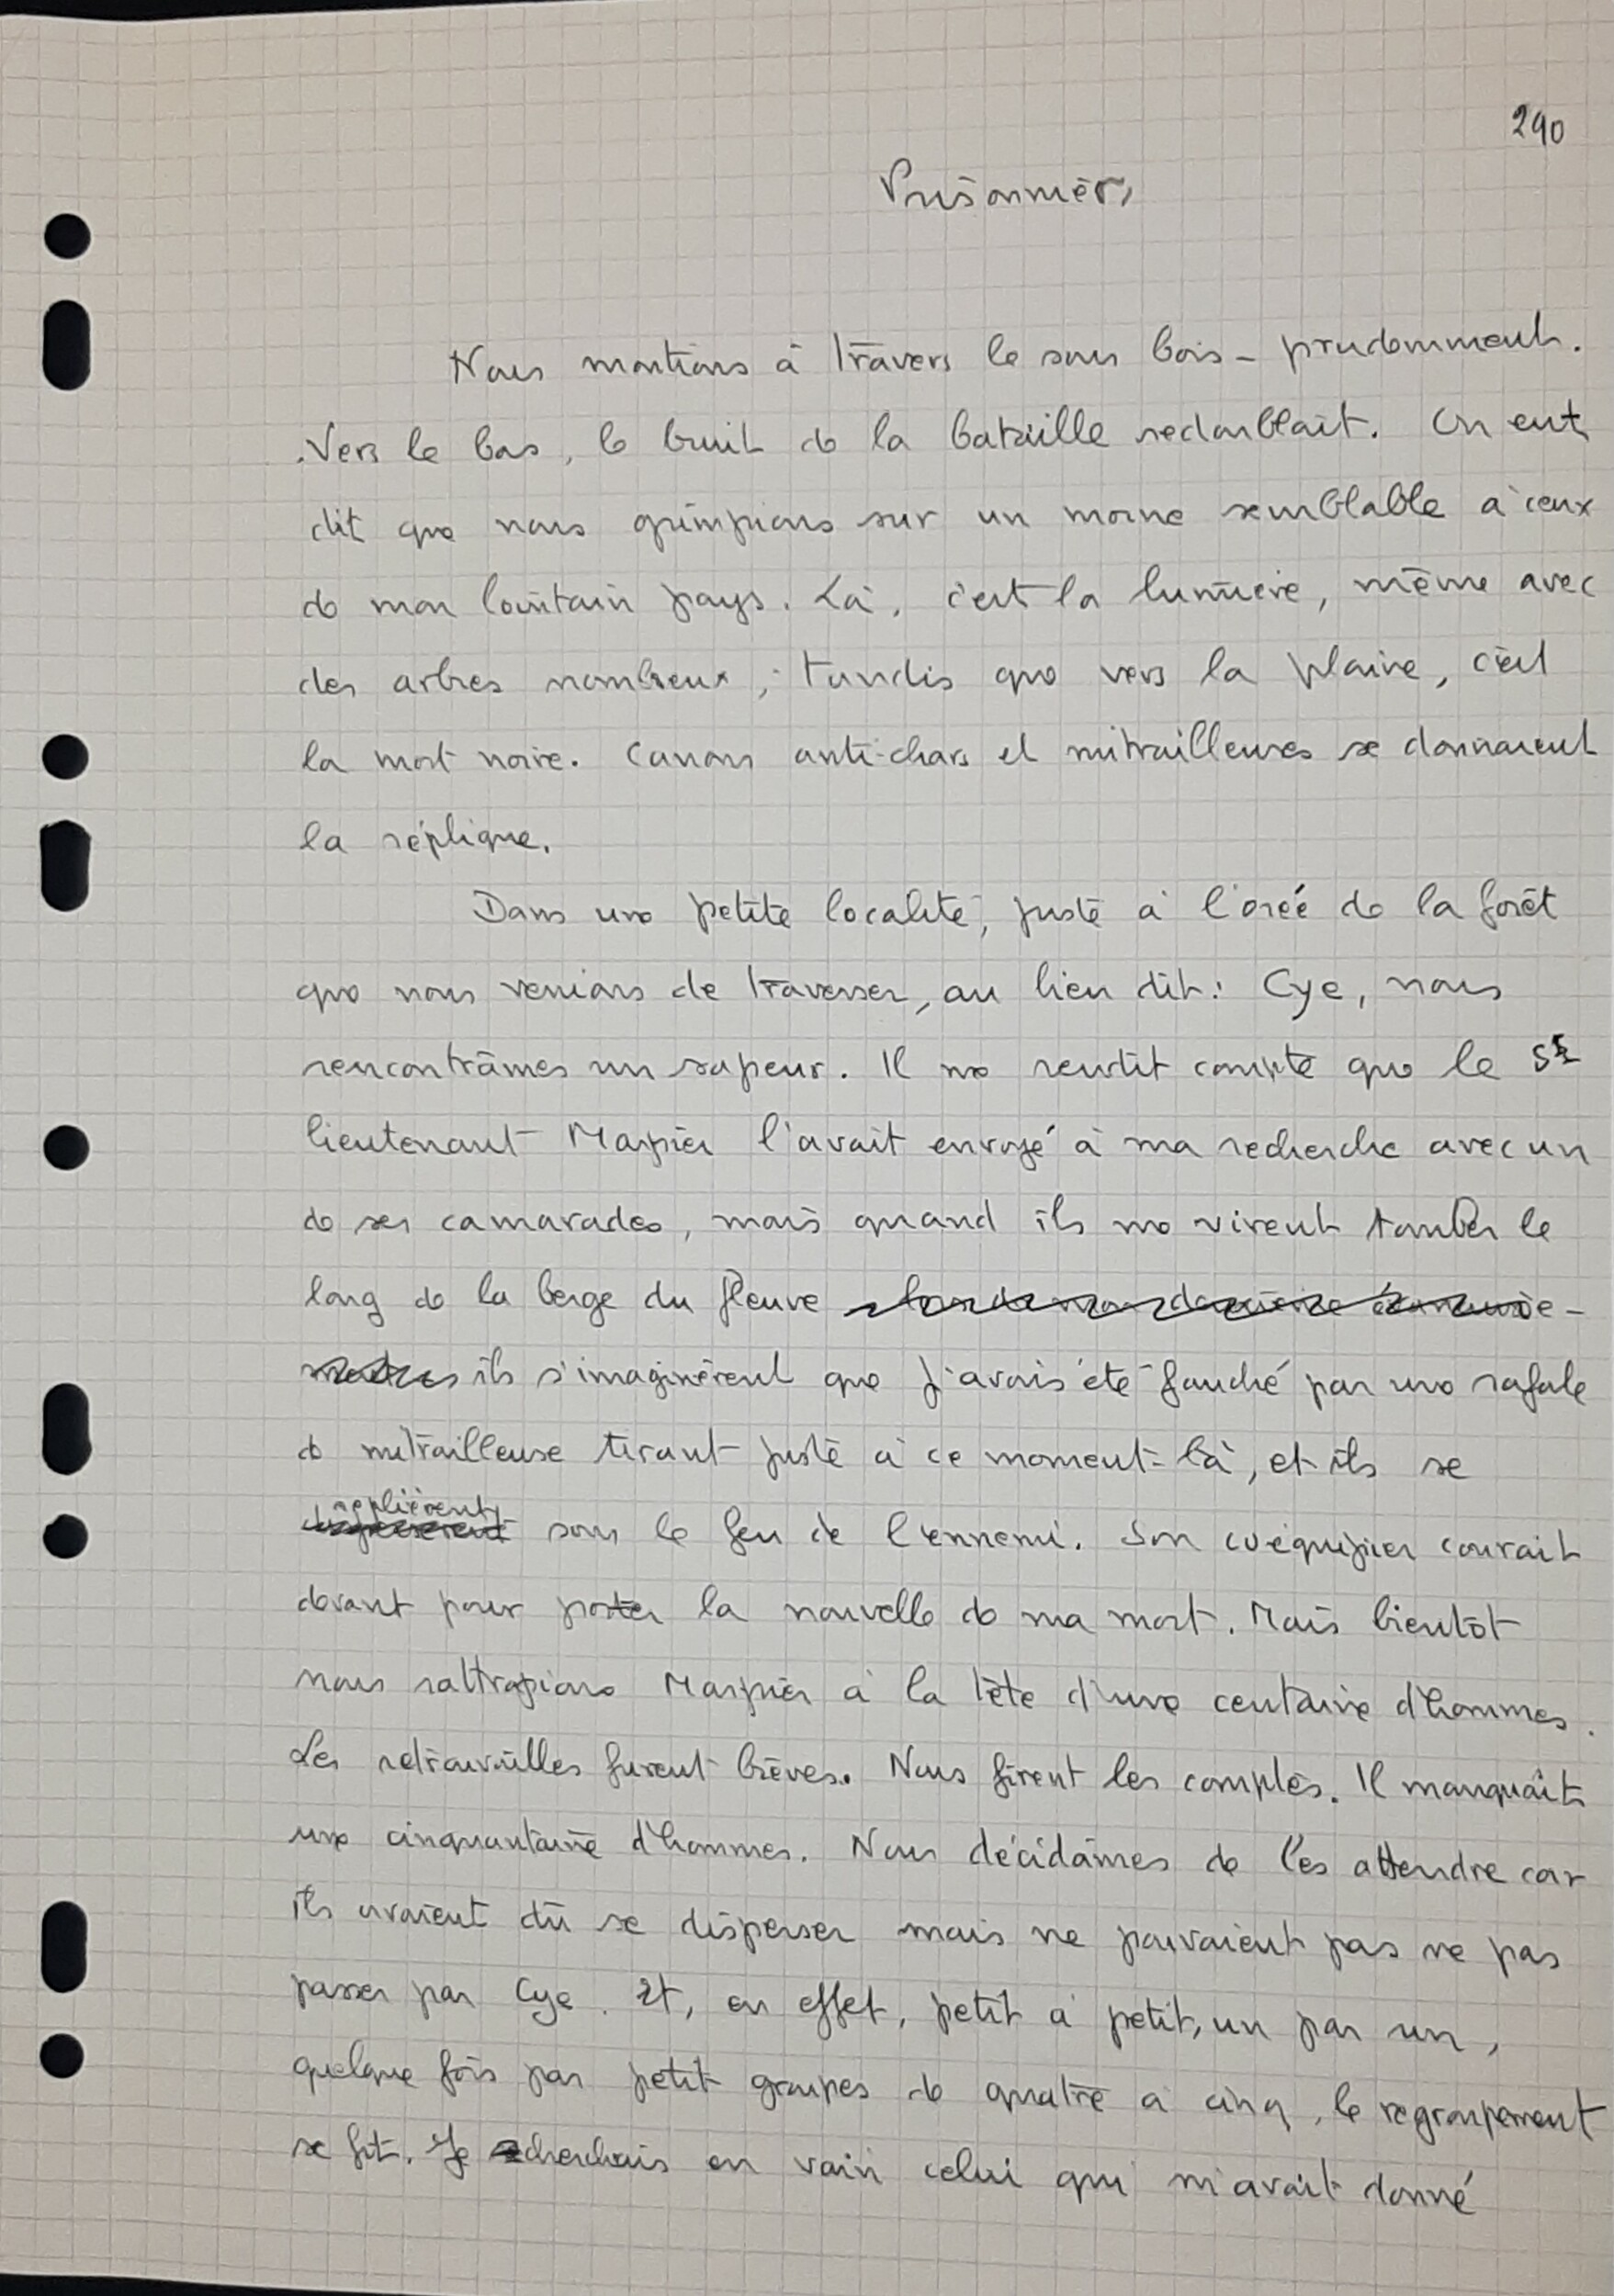 290
Prisonnier,
Nous montions à travers le sous bois - prudemment.
Vers le bas, le bruit de la bataille redoublait. On eut
dit que nous grimpions sur un morne semblable à ceux
de mon lointain pays. Là, c'est la lumière, même avec
des arbres nombreux, tandis que vers la plaine, c'est
la mort noire. Canons anti-chars et mitrailleuses se donnaient
la réplique.
Dans une petite localité, juste à l'orée de la forêt
que nous venions de traverser, au lieu dit : Cye, nous
rencontrâmes un sapeur. Il me rendit compte que le
lieutenant Maspier l'avait envoyé à ma recherche avec un
de ses camarades, mais quand ils me virent tomber le
long de la berge du fleuve
ils s'imaginèrent que j'avais été fauché par une rafale
de mitrailleuse tirant juste à ce moment-là, et ils se
replièrent sous le feu de l'ennemi. Son coéquipier courait
devant pour porter la nouvelle de ma mort. Mais bientôt
nous rattrapions Maspier à la tête d'une centaine d'hommes.
Les retrouvailles furent brèves. Nous firent les comptes. Il manquait
une cinquantaine d'hommes. Nous décidâmes de les attendre car
ils avaient dû se disperser mais ne pouvaient pas ne pas
passer par Cye. Et, en effet, petit à petit, un par un,
quelque fois par petit groupes de quatre à cinq, le regroupement
se fit. Je cherchais en vain celui qui m'avait donné